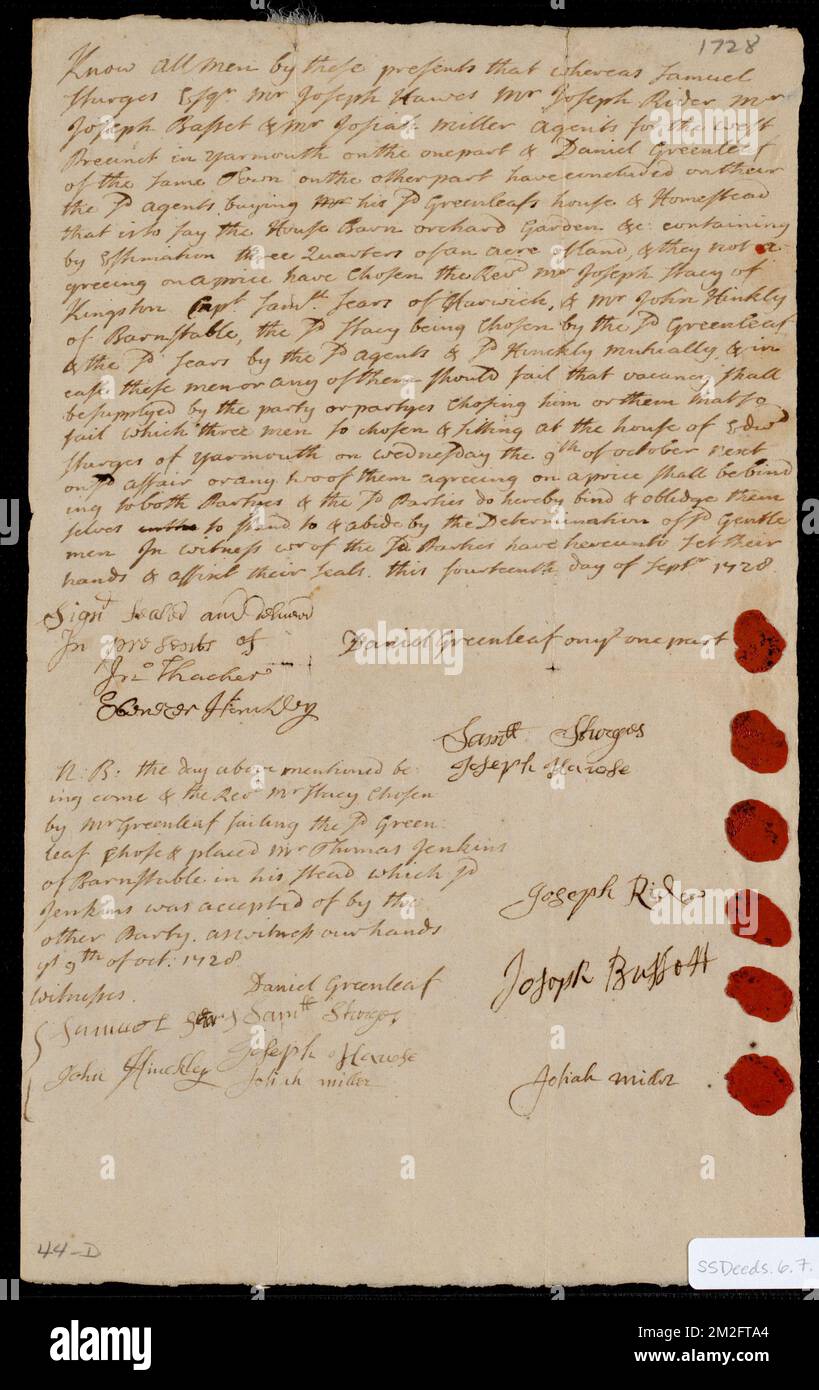 1728
Know all men by these presents that whereas Samuel
Sturges Esqr. Mr Joseph Hawes Mr Joseph Rider Mr
Joseph Basset & Mr Josiah Miller agents for the west
Precinct in Yarmouth on the one part & Daniel Greenleaf
of the same Town on the other part have concluded on their
the sd agents buying his sd Greenleafs house & Homestead
that is to say the House Barn orchard Garden &c containing
by Estimation three Quarters of an acre of land, & they not a-
greeing on a price have Chosen the Revd Mr Joseph Stacy of
Kingston Capt. Samll Sears of Harwich, & Mr John Hinkly
of Barnstable, the sd Stacy being Chosen by the sd Greenleaf
& the sd Sears by the sd agents & sd Hinckly mutually, & in
case these men or any of them should fail that vacancy shall
be supplyed by the party or partyes Chosing him or them that so
fail which three men so chosen & sitting at the house of Edwd
Sturges of Yarmouth on wednesday the 9th of october next
on sd affair or any two of them agreeing on a price shall be bind
ing to both Partyes & the sd Parties do hereby bind & obledge them
selves to stand to & abide by the Determination of sd Gentle
men In witness wrof the sd Parties have hereunto set their
hands & affixt their seals. this fourteenth day of Septr 1728.
Signd Sealed and delivered
In presents of
Daniel Greenleaf on ye one part
Jno Thacher
Ebenezer Hinckley
Samll Sturges
Joseph Hawse
N: B: the day above mentioned be
ing come & the Revd Mr Stacy Chosen
by Mr Greenleaf failing the sd Green
leaf Chose & placed Mr Thomas Jenkins
of Barnstable in his stead which sd
Jenkins was accepted of by the
other Party. as witness our hands
ys 9th of oct: 1728
Joseph Rider
Joseph Bassett
witnesses.
Daniel Greenleaf
Samuel Sears Samll Sturges
Joseph Hawse
John Hinckley
Josiah miller
Josiah miller
44-D
SSDeeds.6.7.
alamy
Image ID: 2M2FTA4
www.alamy.com